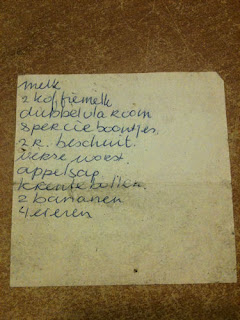 melk
2 koffiemelk
dubbelvla room
spercieboontjes.
2 r. beschuit.
verse worst.
appelsap
krentebollen.
2 bananen
4 eieren